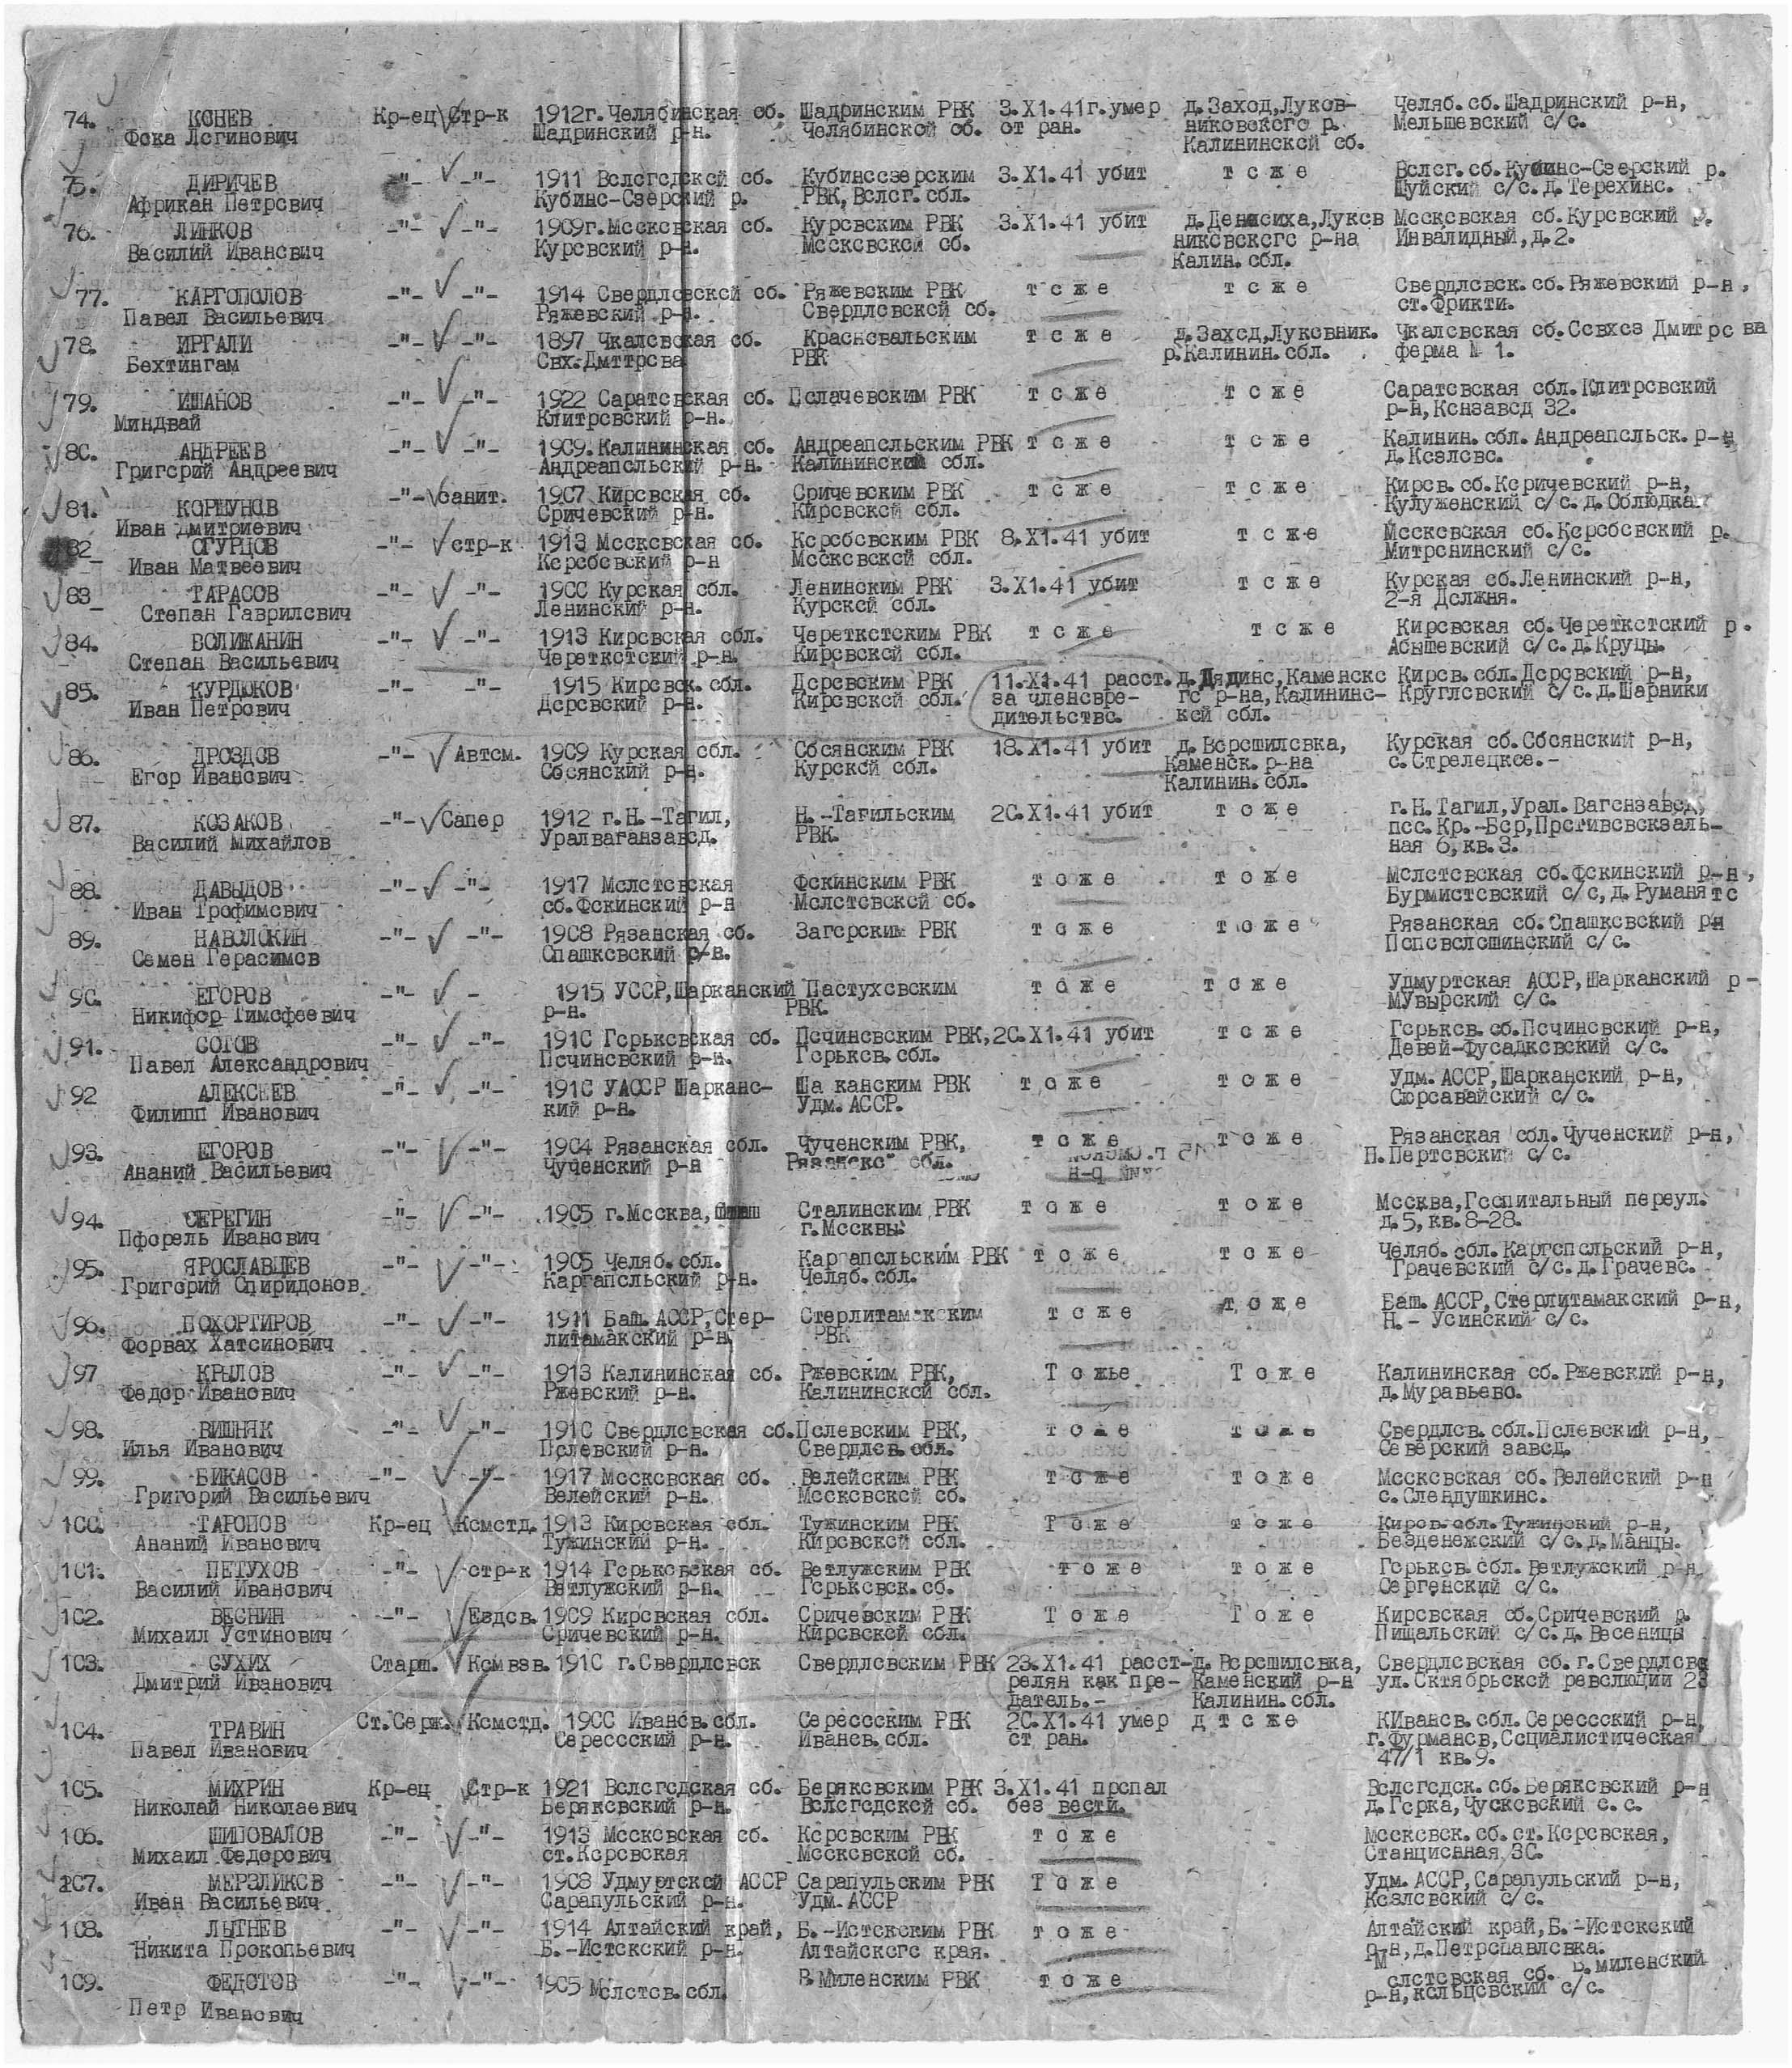 74. КОНЕВ Кр-ец Стр-к 1912г. Челябинская об. Шадринским РВК 3.Х1.41г. умер д. Заход, Луков- Челяб. об. Шадринский р-н,
Фока Логинович Шадринский р-н. Челябинской об. от ран. никовского р. Мельшевский с/с.
Калининской об.
75. ДИРИЧЕВ -"- -"- 1911 Вологодской об. Кубиноозерским 3.Х1.41 убит т о ж е Волог. об. Кубино-Озерский р.
Африкан Петрович Кубино-Озерский р. РВК, Волог. обл. Шуйский с/с. д. Терехино.
76. ЛИНКОВ -"- -"- 1909г. Московская об. Куровским РВК 3.Х1.41 убит д. Денисиха, Луков Московская об. Куровский р.
Василий Иванович Куровский р-н. Московской об. никовского р-на Инвалидный, д.2.
Калин. обл.
77. КАРГОПОЛОВ -"- -"- 1914 Свердловской об. Ряжевским РВК т о ж е т о ж е Свердловск. об. Ряжевский р-н,
Павел Васильевич Ряжевский р-н. Свердловской об. ст. Фрикти.
78. ИРГАЛИ -"- -"- 1897 Чкаловская об. Красновальским т о ж е д. Заход, Луковник. Чкаловская об. Совхоз Дмитрова
Бехтингам Свх. Дмттрова РВК р. Калинин. обл. ферма № 1.
79. ИШАНОВ -"- -"- 1922 Саратовская об. Полачевским РВК т о ж е т о ж е Саратовская обл. Клитровский
Миндвай Клитровский р-н. р-н, Конзавод 32.
80. АНДРЕЕВ -"- -"- 1909. Калининская об. Андреапольским РВК т о ж е т о ж е Калинин. обл. Андреапольск. р-н
Григорий Андреевич Андреапольский р-н. Калининский обл. д. Козлово.
81. КОРШУНОВ -"- санит. 1907 Кировская об. Оричевским РВК т о ж е т о ж е Киров. об. Коричевский р-н,
Иван Дмитриевич Оричевский р-н. Кировской обл. Кулуженский с/с. д. Облюдка.
82 ОГУРЦОВ -"- стр-к 1913 Московская об. Коробовским РВК 8.Х1.41 убит т о ж е Московская об. Коробовский р.
Иван Матвеевич Коробовский р-н Московской обл. Митронинский с/с.
83 ТАРАСОВ -"- -"- 1900 Курская обл. Ленинским РВК 3.Х1.41 убит т о ж е Курская об. Ленинский р-н,
Степан Гаврилович Ленинский р-н. Курской обл. 2-я Должня.
84. ВОЛИЖАНИН -"- -"- 1913 Кировская обл. Череткотским РВК т о ж е т о ж е Кировская об. Череткотский р.
Степан Васильевич Череткотский р-н. Кировской обл. Асышевский с/с. д. Круцы.
85. КУРДЮКОВ -"- -"- 1915 Кировск. обл. Доровским РВК 11.Х1.41 расст. д. Дядино, Каменско Киров. обл. Доровский р-н,
Иван Петрович Доровский р-н. Кировской обл. за членовре- го р-на, Калининс- Кругловский с/с. д. Шарники
дительство. кой обл.
86. ДРОЗДОВ -"- Автом. 1909 Курская обл. Обоянским РВК 18.Х1.41 убит д. Ворошиловка, Курская об. Обоянский р-н,
Егор Иванович Обоянский р-н. Курской обл. Каменск. р-на с. Стрелецкое.-
Калинин. обл.
87. КОЗАКОВ -"- Сапер 1912 г. Н.-Тагил, Н.-Тагильским 20.Х1.41 убит т о ж е г. Н. Тагил, Урал. Вагонзавод,
Василий Михайлов Уралваганзавод. РВК. пос. Кр.-Бор, Противовокзаль-
ная 6, кв.3.
88. ДАВЫДОВ -"- -"- 1917 Молотовская Фокинским РВК т о ж е т о ж е Молотовская об. Фокинский р-н,
Иван Трофимович об. Фокинский р-н Молотовской об. Бурмистовский с/с, д. Руманято
89. НАВОЛОКИН -"- -"- 1908 Рязанская об. Загорским РВК т о ж е т о ж е Рязанская об. Спашковский рн
Семен Герасимов Спашковский с/в. Поповолошинский с/с.
90. ЕГОРОВ -"- - 1915 УССР, Шарканский Пастуховским т о ж е т о ж е Удмуртская АССР, Шарканский р-
Никифор Тимофеевич р-н. РВК. Мувырский с/с.
91. СОТОВ -"- -"- 1910 Горьковская об. Починовским РВК, 20.Х1.41 убит т о ж е Горьков. об. Починовский р-н,
Павел Александрович Починовский р-н. Горьков. обл. Девей-Фусадковский с/с.
92 АЛЕКСЕЕВ -"- -"- 1910 УАССР Шарканс- Ша канским РВК т о ж е т о ж е Удм. АССР, Шарканский р-н,
Филипп Иванович кий р-н. Удм. АССР. Сюрсавайский с/с.
93. ЕГОРОВ -"- -"- 1904 Рязанская обл. Чученским РВК, т о ж е т о ж е Рязанская обл. Чученский р-н,
Ананий Васильевич Чученский р-н обл. П. Пертовский с/с.
94. СЕРЕГИН -"- -"- 1905 г. Москва, Сталинским РВК т о ж е т о ж е Москва, Госпитальный переул.
Пфорель Иванович г. Москвы. д.5, кв.8-28.
95. ЯРОСЛАВЦЕВ -"- -"- 1905 Челяб. обл. Каргапольским РВК т о ж е т о ж е Челяб. обл. Каргопольский р-н,
Григорий Спиридонов Каргапольский р-н. Челяб. обл. Грачевский с/с. д. Грачево.
96. ПОХОРГИРОВ -"- -"- 1911 Баш. АССР, Стер- Стерлитамакским т о ж е т о ж е Баш. АССР, Стерлитамакский р-н,
Форвах Хатсинович литамакский р-н. РВК Н.- Усинский с/с.
97 КРЫЛОВ -"- -"- 1913 Калининская об. Ржевским РВК, Т о жье Т о ж е Калининская об. Ржевский р-н,
Федор Иванович Ржевский р-н. Калининской обл. д. Муравьево.
98. ВИШНЯК -"- -"- 1910 Свердловская об. Полевским РВК, т о ж е т о ж е Свердлов. обл. Полевский р-н,
Илья Иванович Полевский р-н. Свердлов. обл. Северский завод.
99. БИКАСОВ -"- -"- 1917 Московская об. Велейским РВК т о ж е т о ж е Московская об. Велейский р-н
Григорий Васильевич Велейский р-н. Московской об. с. Слендушкино.
100. ТАРОПОВ Кр-ец Комотд. 1913 Кировская обл. Тужинским РВК Т о ж е т о ж е Киров. обл. Тужинский р-н,
Ананий Иванович Тужинский р-н. Кировской обл. Безденежский с/с. д. Манцы.
101. ПЕТУХОВ -"- стр-к 1914 Горьковская об. Ветлужским РВК т о ж е т о ж е Горьков. обл. Ветлужский р-н
Василий Иванович Ветлужский р-н. Горьковск. об. Сергенский с/с.
102. ВЕСНИН -"- Ездов. 1909 Кировская обл. Оричевским РВК Т о ж е Т о ж е Кировская об. Оричевский р.
Михаил Устинович Оричевский р-н. Кировской обл. Пищальский с/с. д. Весеницы
103. СУХИХ Старш. Комвзв. 1910 г. Свердловск Свердловским РВК 23.Х1.41 расст- д. Ворошиловка, Свердловская об. г. Свердловс
Дмитрий Иванович релян как пре- Каменский р-н ул. Октябрьской революции 23
датель.- Калинин. обл.
104. ТРАВИН Ст. Серж. Комотд. 1900 Иванов. обл. Серессским РВК 20.Х1.41 умер д т о ж е КИванов. обл. Серессский р-н,
Павел Иванович Серессский р-н. Иванов. обл. от ран. г. Фурманов, Социалистическая
47/1 кв.9.
105. МИХРИН Кр-ец Стр-к 1921 Вологодская об. Беряковским РВК 3.Х1.41 пропал Вологодск. об. Беряковский р-н
Николай Николаевич Беряковский р-н. Вологодской об. без вести. д. Горка, Чусковский с. с.
106. ШИПОВАЛОВ -"- -"- 1913 Московская об. Коровским РВК т о ж е Московск. об. ст. Коровская,
Михаил Федорович ст. Коровская Московской об. Станционная 30.
107. МЕРЗЛИКОВ -"- -"- 1908 Удмуртской АССР Сарапульским РВК Т о ж е Удм. АССР, Сарапульский р-н,
Иван Васильевич Сарапульский р-н. Удм. АССР Козловский с/с.
108. ЛЫТНЕВ -"- -"- 1914 Алтайский край, Б.-Истокским РВК т о ж е Алтайский край, Б.-Истокский
Никита Прокопьевич Б.-Истокский р-н. Алтайского края. р-н, д. Петропавловка.
109. ФЕДОТОВ -"- -"- 1905 Молотов. обл. В. Миленским РВК т о ж е Молотовская об. В. Миленский
Петр Иванович р-н, кольцовский с/с.